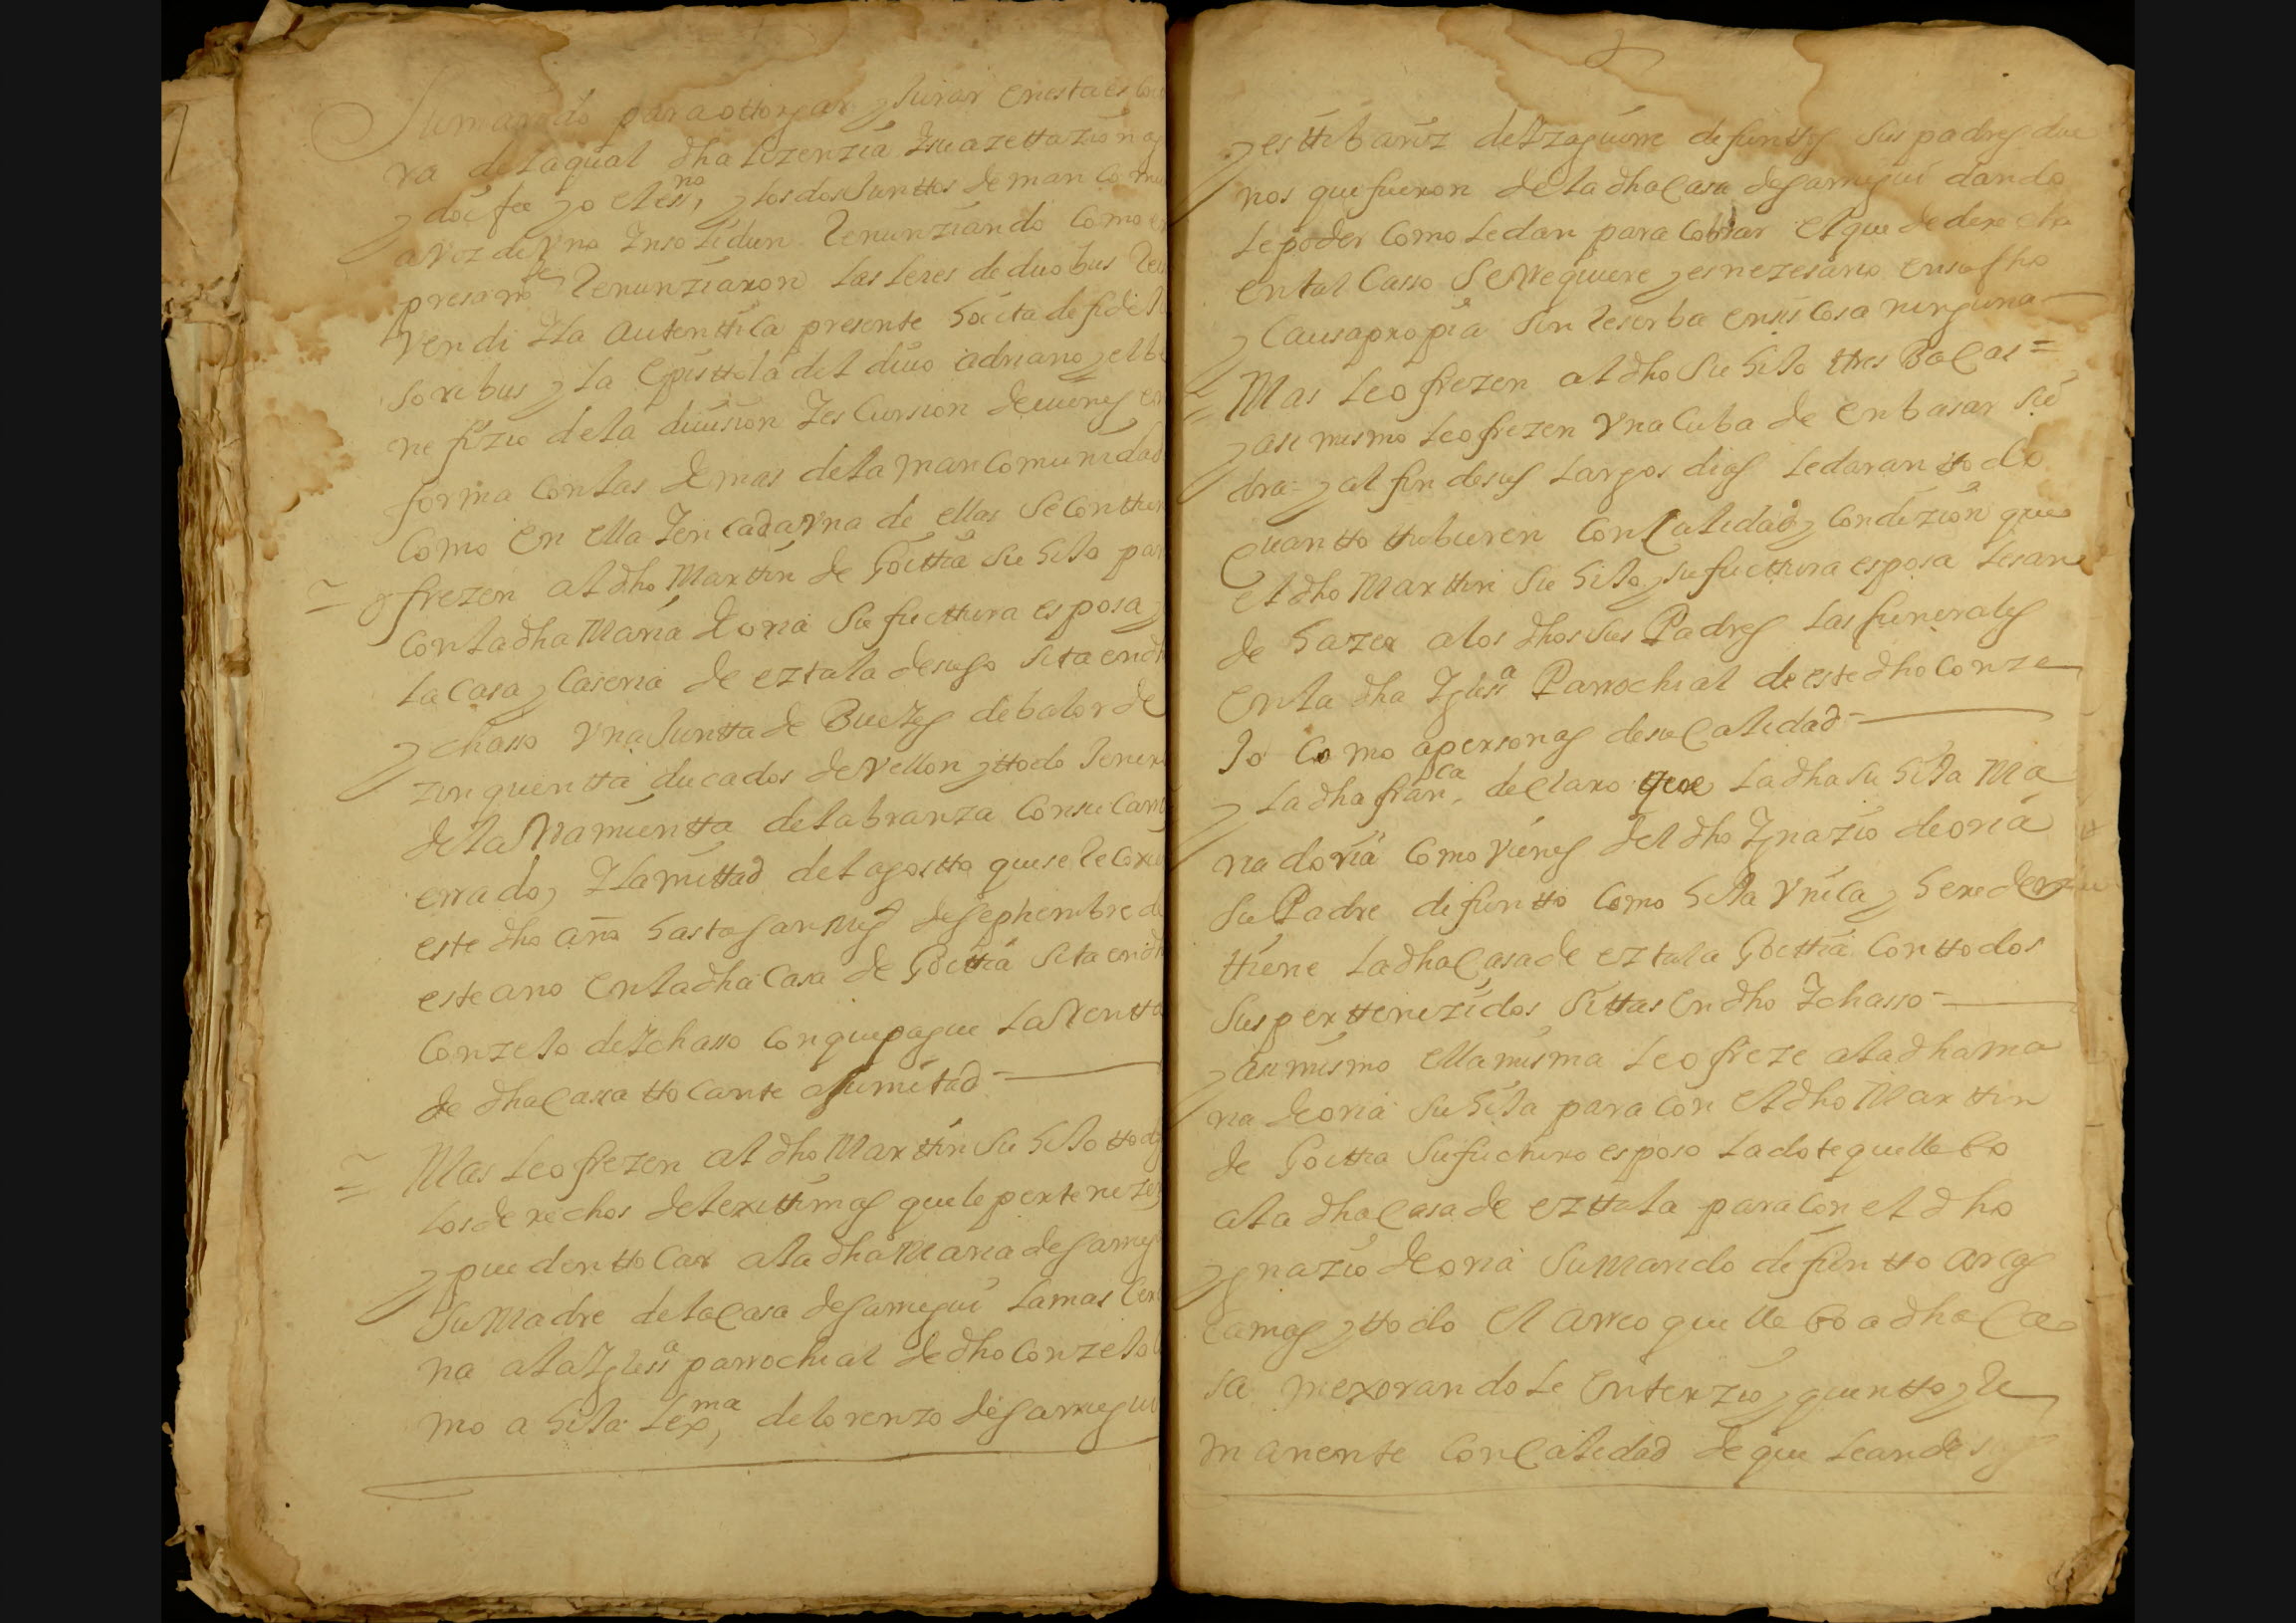 Su marido para ottorgar y Jurar en esta es
ra de la qual dha lizenzia Y su azettazion
y doi fee yo el essno, y los dos Junttos de man comun
a voz de vno Ynsolidun Renunziando Como
Renunziaron las leies de duo bus
vendi Y la autenttica presente hocita de fide
soribus y la Episttola del diuo adriano y el be
nefizio de la diuision Y escursion de uienes en
forma Con las demas de la mancomunidad
Como en ella Y en cada vna de ellas se Conttien
ofrezen al dho Marttin de Goittia su hijo para
Con la dha Maria de oria su fucttura esposa
La Casa y Caseria de eztala de suso sita en dh
ychasso vna Juntta de Bueyes de balor de
zinquentta ducados de vellon y ttodo Jenero
de la Rramientta de labranza Con su Carro
errado, Y la mittad del agostto que se Recoxie
este dho año hasta San Miguel de Sephembre de
este ano en la dha Casa de Goittia sita en dh
Conzejo de Ychasso con que pague la Rentta
de dha Cassa ttocante a su mitad
Mas le ofrezen al dho Marttin su hijo ttodos
los derechos de lexittimas que le pertenezen
y pueden ttocar a la dha Maria de Sarregui
su Madre de la Casa de Sarregui la mas Cer
na a la Yglessa parrochial de dho Conzejo
mo a hija lexma, de lorenzo de Sarregui
y esttibariz de Yzaguirre difunttos sus padres due
nos que fueron de la dha Casa de Sarregui dando
le poder Como le dan para Cobrar el que de derecho
en tal Casso se rrequiere y es nezesario en su fho
y Causa propia sin Reserba en si Cosa ninguna
Mas le ofrezen al dho su hijo ttres Bacas =
y asi mismo le ofrezen vna Cuba de enbasar sie
dra y al fin de sus largos dias le daran ttodo
Quantto ttubieren Con Calidad y Condizion que
el dho Marttin su hijo y su fucttura esposa les an
de hazer a los dhos sus Padres las funerales
en la dha Yglessa Parrochial de este dho Conze
jo Como a personas de su Calidad
y la dha franca, declaro que la dha su hija Ma
ria doria Como vienes del dho Ygnazio de oria
su Padre difuntto Como hija vnica y heredera
ttiene la dha Casa de eztala Goittia Con ttodos
sus perttenezidos sittas en dho Ychasso
y asi mismo ella misma le ofreze a la dha ma
ria de oria su hija para con el dho Marttin
de Goittia su fucturo esposo la dote que llebo
a la dha Casa de ezttala para con el dho
Ygnazio de oria su Marido difuntto arcas
Camas y ttodo el arreo que llebo a dha Ca
sa mexorandole en terzio y quintto y Re
manente Con Calidad de que le an de